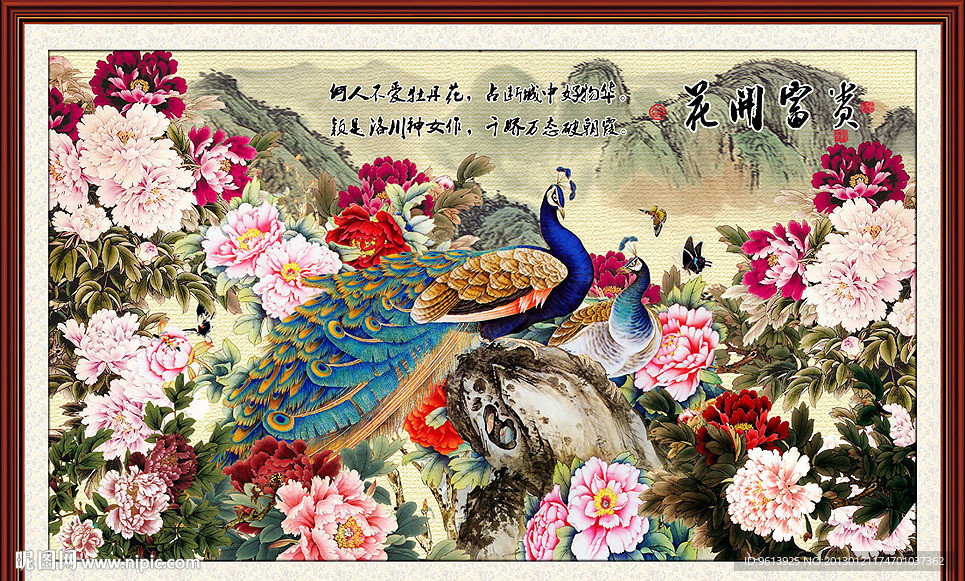 何人不爱牡丹花，占断城中好物华。
疑是洛川神女作，千娇万态破朝霞。
花開富贵
昵图网 www.nipic.com
ID:9613925 NO:20130121174701037362